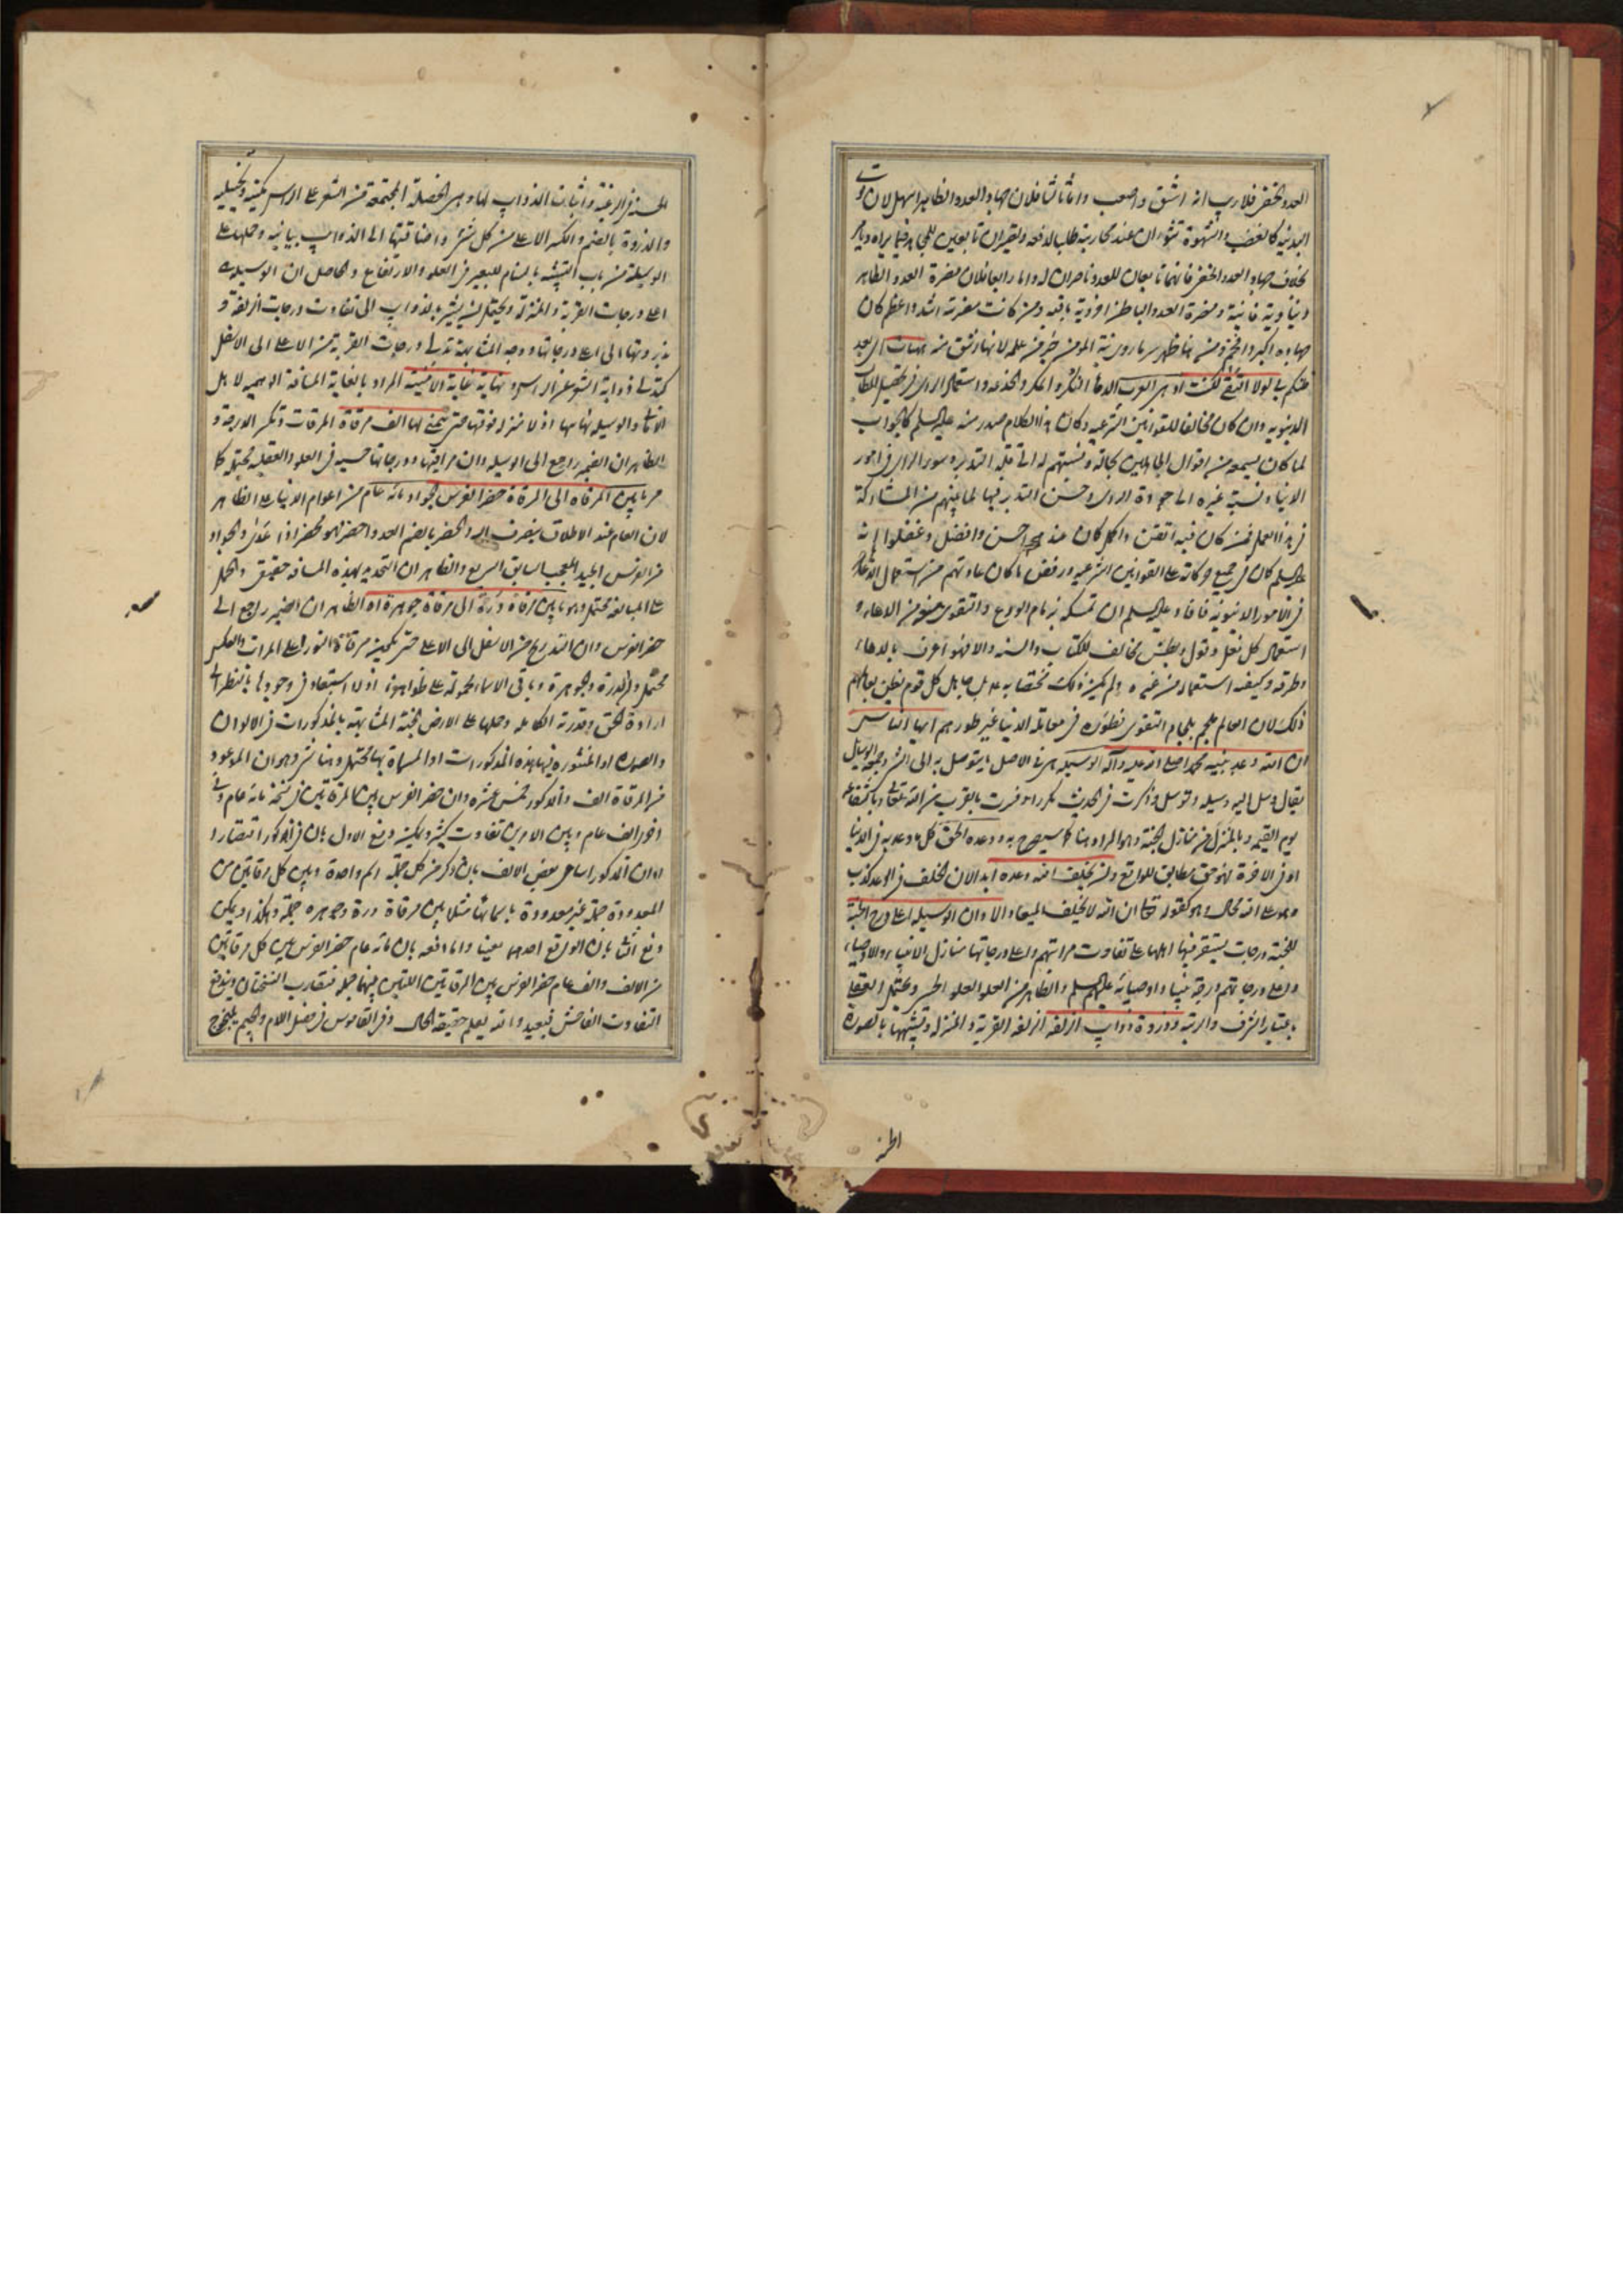 العدو المخفى فلا ريب انه اشق واصعب واما ثالثا فلان جهاد العدو الظاهر اسهل لان
البدنية كالغضب والشهوة عند محاربته طلبا لدفعه
بخلاف جهاد العدو المخفى فانهما تابعان للعدو ناصران له واما رابعا فلان مضرة العدو الظاهر
دنياوية فانية ومضرة العدو الباطن اخروية باقية ومن كانت مضرته اشد واعظم كان
جهاده اكبر وافخم ومن هنا ظهر سر ما روى نية المؤمن خير من عمله لانها اشق منه
لولا التقى لكنت ادهى العرب الدهاء النكر والمكر والخدعة واستعمال الراى فى تحصيل المطالب
الدنيويه وان كان مخالفا للقوانين الشرعيه وكان هذا الكلام صدر منه عليه السلم كالجواب
لما كان يسمعه من اقوال الجاهلين بحاله ونسبتهم له الى قلة التدبير وسوء الراى فى امور
الدنيا ونسبة غيره الى جودة الراى وحسن التدبير فيها لما بينهم من المشاركة
فى هذا العمل فمن كان فيه اتقن واكمل كان عندهم احسن وافضل وغفلوا انه
عليه السلم كان فى جميع حركاته على القوانين الشرعيه ورفض ما كان عادتهم من استعمال الدهاء
فى الامور الدنيويه فافاد عليه السلم ان تمسكه بزمام الورع والتقوى منعه من الدهاء و
استعمال كل فعل وقول وبطش مخالف للكتاب والسنه والا فهو اعرف بالدهاء
وطرقه وكيفيه استعماله من غيره ولم يكن ذلك مختصا به عليه السلم بل حال كل قوم
ذلك لان العالم ملجم بلجام التقوى فطوره فى معامله الدنيا غير طورهم ايها الناس
ان الله وعد نبيه محمدا صلى الله عليه وآله الوسيله هى فى الاصل ما يتوصل به الى الشئ وجمعها الوسايل
يقال وسل اليه وسيله وتوسل وذكرت فى الحديث مكررا وفسرت بالقرب من الله تعالى وبالشفاعه
يوم القيمه وبالمنزل من منازل الجنة وهو المراد هنا كما سيصرح به ووعده الحق كل ما وعد به فى الدنيا
او فى الاخرة فهو حق مطابق للواقع ولن يخلف الله وعده ابدا لان الخلف فى الوعد كذب
وهو على الله محال وهو كقوله تعالى ان الله لا يخلف الميعاد الا وان الوسيله اعلى درج الجنة
للجنة درجات يستقر فيها اهلها على تفاوت مراتبهم واعلى درجاتها منازل الانبياء والاوصياء
واعلى درجاتهم درجة نبينا واوصيائه عليهم السلم والظاهر من العلو العلو الحسى ويحتمل العقلى
باعتبار الشرف والرتبة وذروة ذوايب الزلفه الزلفه القربة والمنزلة وتشبيهها بالصورة
الحسنه
الحسنة فى الرغبة واثبات الذوايب لها وهى الخصلة المجتمعة من الشعر على الراس مكنية وتخييلية
والذروة بالضم والكسر الاعلى من كل شئ واضافتها الى الذوايب بيانيه وحملها على
الوسيلة من باب التشبيه بالسنام للبعير فى العلو والارتفاع والحاصل ان الوسيله
اعلى درجات القربة والمنزلة ويحتمل ان يشير بالذوايب الى تفاوت درجات الزلفة و
بذروتها الى اعلى درجاتها ووجه المشابهة تدلى درجات القربة من الاعلى الى الاسفل
كتدلى ذوابة الشعر عن الراس ونهاية غاية الامنية المراد بالغاية المسافة
والوسيله نهايتها اذ لا منزله فوقها حتى يتمنى لها الف مرقاة المرقات وتكسر الدرجة و
الظاهر ان الضمير راجع الى الوسيله وان مراقيها ودرجاتها حسيه فى العلو والعقليه محتمله كما
مر ما بين المرقاه الى المرقاة حضر الفرس الجواد مائه عام من اعوام الدنيا على الظاهر
لان العام عند الاطلاق ينصرف اليه والحضر بالضم العدو واحضر فهو محضر اذا عدى والجواد
من الفرس الجيد المعجب السابق السريع والظاهر ان التحديد بهذه المسافه حقيقى والحمل
على المبالغه محتمل وهو ما بين مرقاة درة الى مرقاة جوهرة اه الظاهر ان الضمير راجع الى
حضر الفرس وان التدريج من الاسفل الى الاعلى حتى يكون مرقاة النور اعلى المرات والعكس
محتمل والدرة والجوهرة وباقى الاسماء محمولة على ظواهرها اذ لا استبعاد فى وجودها بالنظر الى
ارادة الحق وقدرته الكامله وحملها على الارض الجنة المشابهة بالمذكورات فى الالوان
والصوره او المنثوره فيها هذه المذكورات او المسماة بها محتمل وهنا شئ وهو ان الموعود
من المرقاة الف والمذكور خمس عشره وان حضر الفرس بين المرقاتين فى نسخة مائه عام وفى
اخرى الف عام وبين الامرين تفاوت كثير ويمكن دفع الاول بان فى المذكور اقتصارا
او ان المذكور اسامى بعض الالف بان ذكر من كل جملة اسم واحدة وبين كل مرقاتين من
المعدودة جملة غير معدودة باسمائها مثلا بين مرقاة درة وجوهره جملة وهكذا ويمكن
دفع الثانى بان الواقع احدهما بعينه واما دفعه بان مائه عام حضر الفرس بين كل مرقاتين
من الالف والف عام حضر الفرس بين المرقاتين اللتين بينهما جمله فيتقارب النسختان ويندفع
التفاوت الفاحش فبعيد والله يعلم حقيقة الحال وفى القاموس فى فصل اللام والجيم يلنجوج